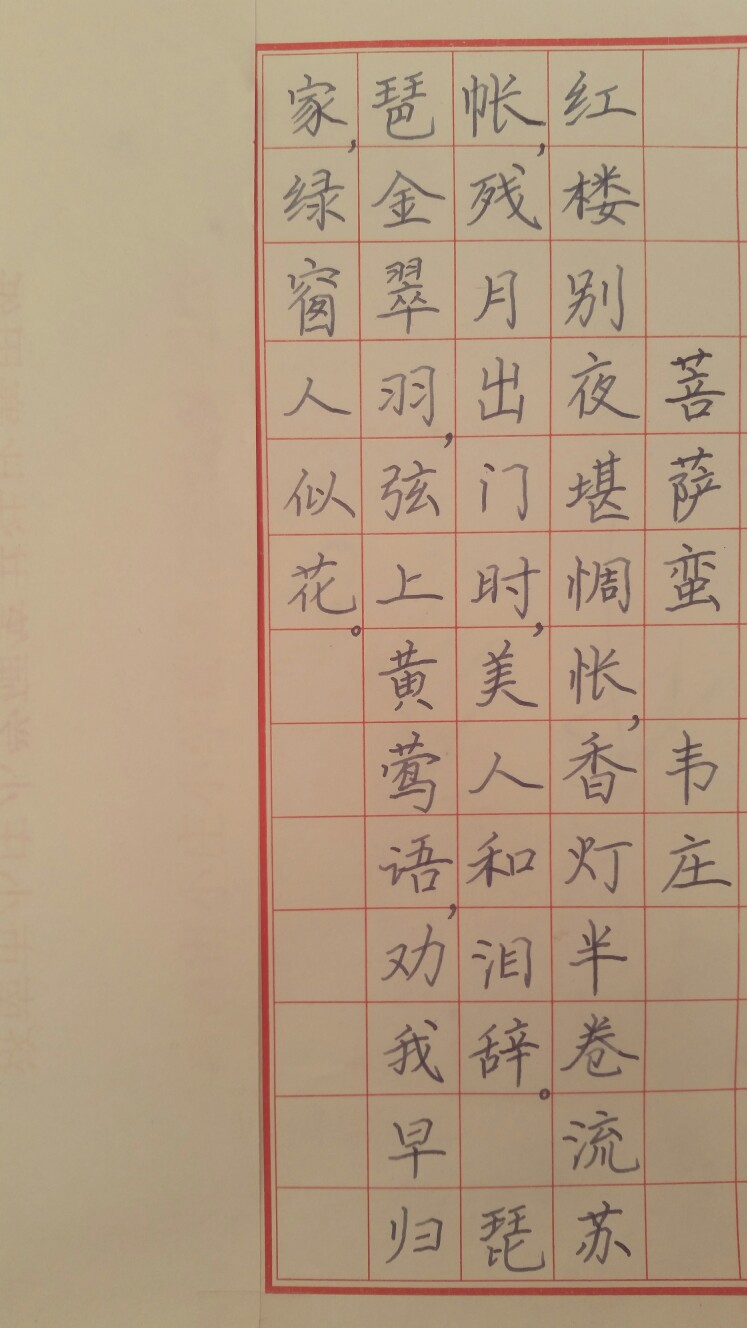 菩萨蛮 韦庄
红楼别夜堪惆怅,香灯半卷流苏
帐,残月出门时,美人和泪辞。 琵
琶金翠羽,弦上黄莺语,劝我早归
家,绿窗人似花。